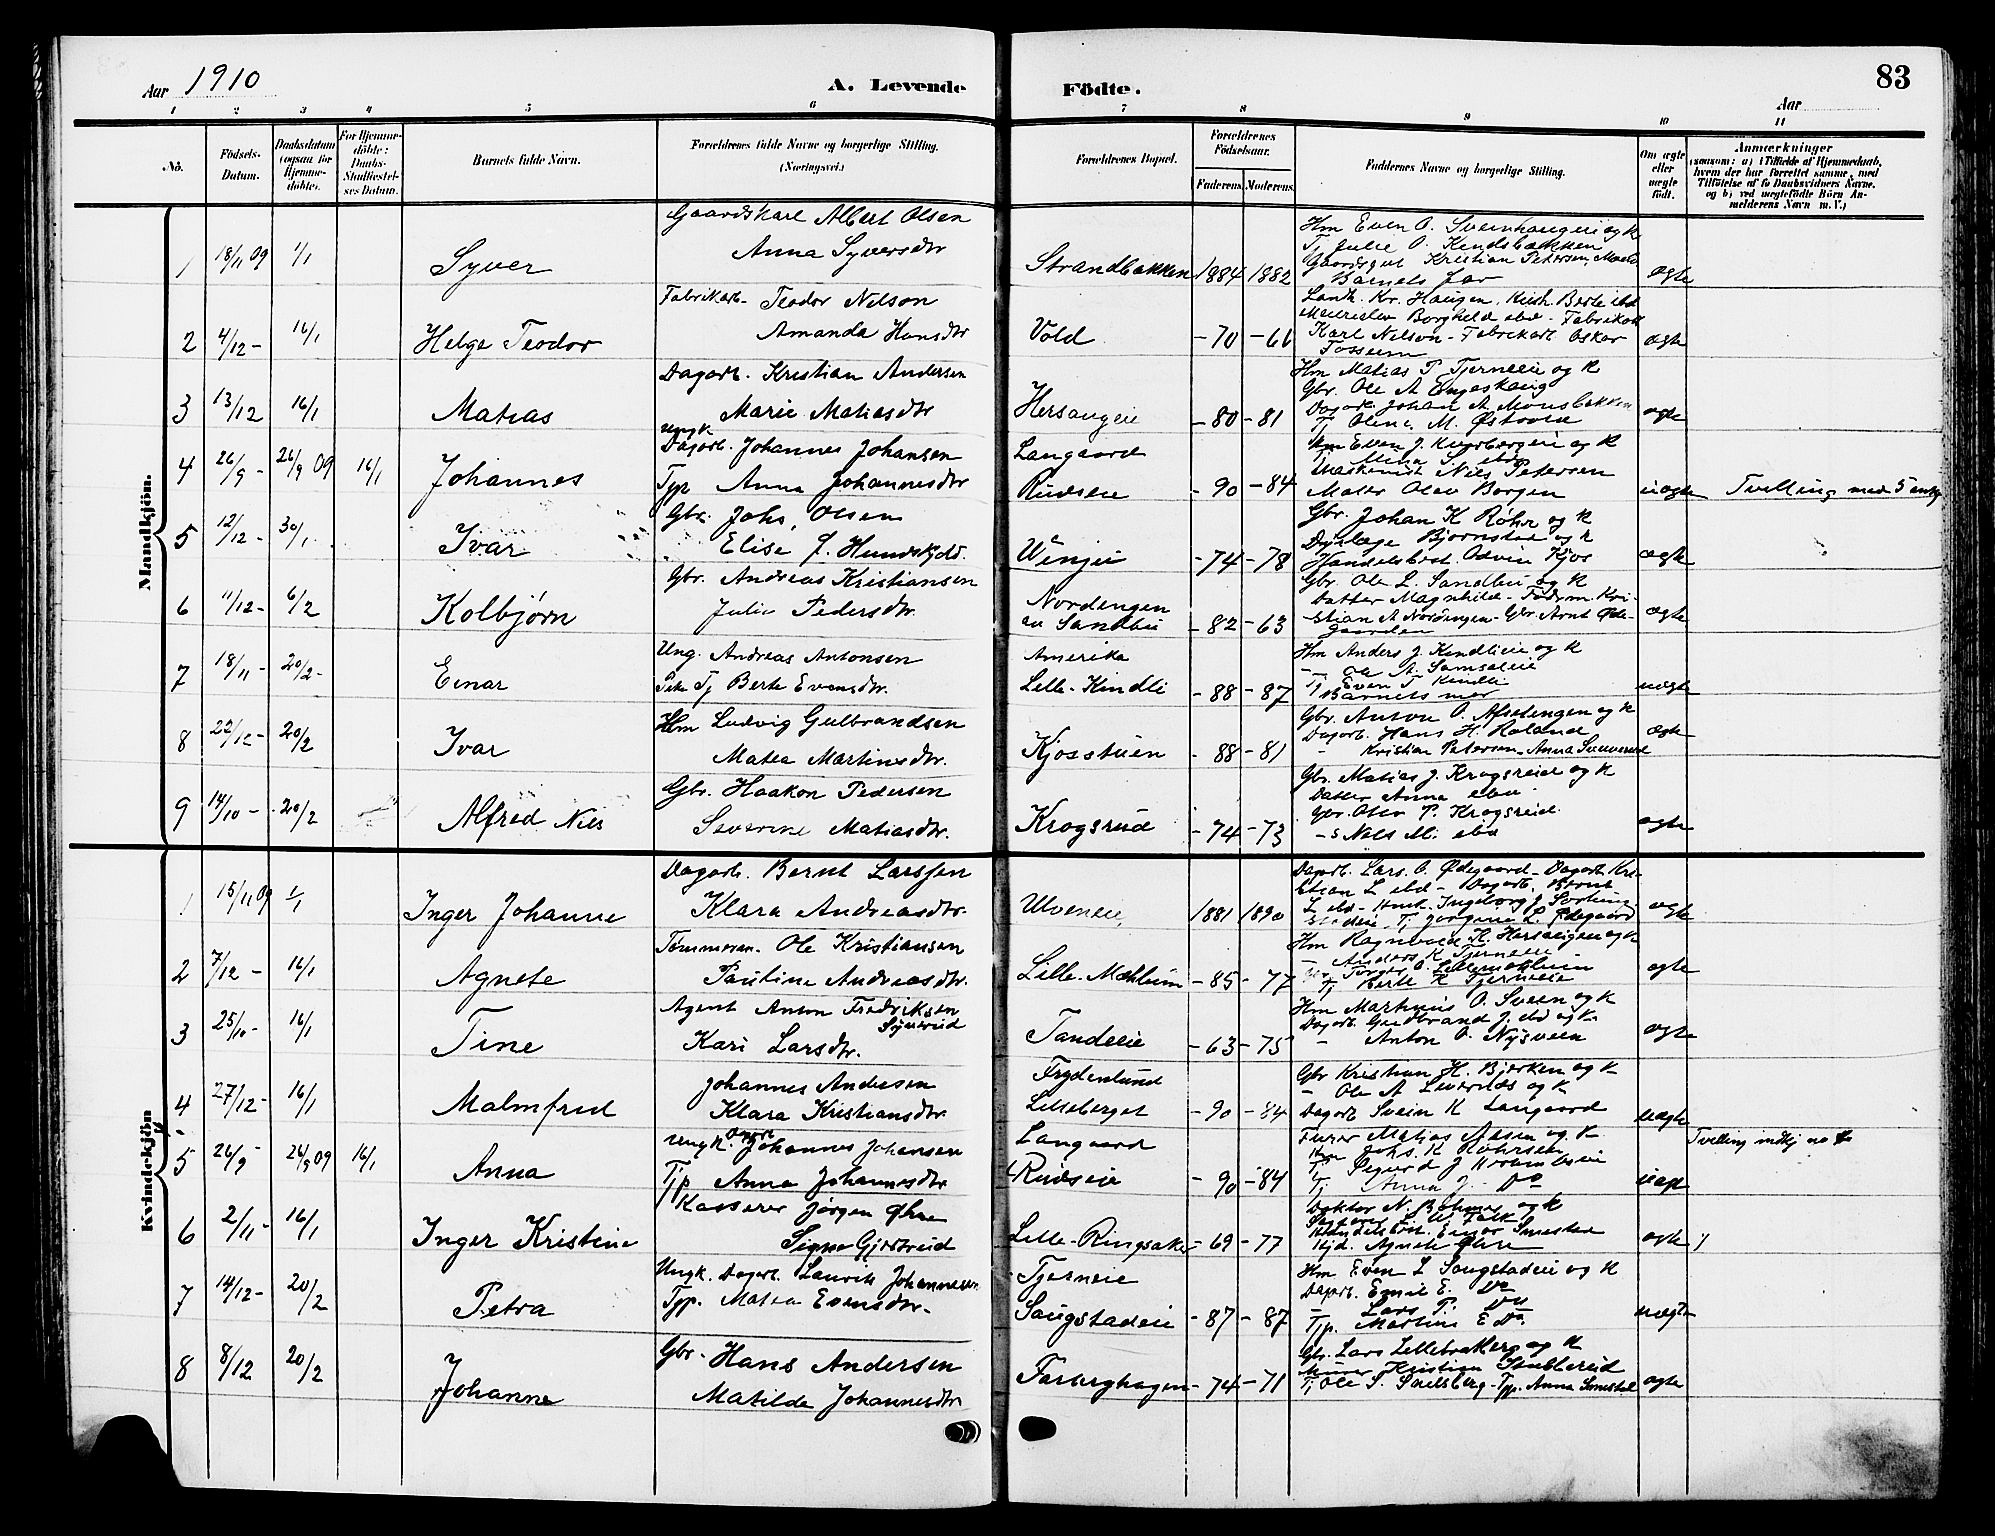 Aar 1910
A. Levende Födte.
83
Aar
1 2 3 4 5 6 7 8 9 10 11
No.
Födsels-Datum.
Daabsdatum (ogsaa for Hjemmedöbte).
For Hjemmedöbte: Daabs-Stadfæstelses Datum.
Barnets fulde Navn.
Forældrenes fulde Navne og borgerlige Stilling. (Næringsvei.)
Forældrenes Bopæl.
Forældrenes Födselsaar.
Faderens. Moderens.
Faddernes Navne og borgerlige Stilling.
Om ægte eller uægte födt.
Anmærkninger
(saasom: a) i Tilfælde af Hjemmedaab, hvem der har forrettet samme, med Tilföielse af to Daabsvidners Navne, og b) ved uægtefödte Börn Anmelderens Navn m. V.)
Mandkjön.
1 18/11 09 1/1 Syver
Gaardskarl Albert Olsen
Anna Syversdtr
Strandbakken 1884 1882
Hm Even O. Sveinhaugeie og K
Tj Julie O. Kindsbakken
Kristian Petersen
Barnets far
ægte
2 4/12 - 16/1 Helge Teodor
Fabrikarb. Teodor Nilson
Amanda Hansdtr
Vold - 70 - 66
Kr. Haugen
Borghild ibd - Fabrikarb
Karl Nelson - Fabrikarb. Oskar
Fosseim
ægte
3 13/12 16/1 Matias
Dagarb. Kristian Andersen
Marie Matiasdtr
Hersaugeie - 80 - 81
Hm Matias P Tjerneie og K
Gbr. Ole A Engeskaug
Dagarb. Johan A Monsbakken
Tj Oline M.
ægte
4 26/9 - 26/9 09 16/1 Johannes
ungk
Dagarb. Johannes Johansen
Tjp Anna Johannesdtr
Langaard
Rudseie - 90 - 84
Hm Even J. og K
Maskinist Nils Petersen
Maler Olav Borgen
uægte Tvilling med 5
5 12/12 - 30/1 Ivar
Gbr. Johs. Olsen
Elise J.
Wenju - 74 - 78
Gbr. Johan K Röhr og K
Dyrlæge Bjørnstad og K
Handelsbest. Odvin Kjos
ægte
6 11/12 - 6/2 Kolbjørn
Gbr. Andreas Kristiansen
Julie Pedersdtr.
Nordengen
av Sandbu - 82 - 63
Gbr. Ole L. Sandbu og K
Datter Magnhild - Fødrm. Kri-
stian A Nordengen - Gbr. Arnt Øde-
gaarden
ægte
7 18/11 - 20/2 - Einar
Ung. Andreas Antonsen
Pike Tj Berte Evensdtr.
Amerika
Lille-Kindli - 88 - 87
Hm Anders J. Kindlieie og K
- Ole A. Samsaleie
Tj Even T Kindli
Barnets mor
uægte
8 22/12 - 20/2 Ivar
Hm Ludvig Gulbrandsen
Matea Martinsdtr.
Kjosstuen - 88 - 81
Gbr. Anton O. Afsetengen og K
Dagarb. Hans H. Roland
- Kristian Petersen - Anna
ægte
9 14/10 - 20/2 Alfred Nils
Gbr. Haakon Pedersen
Severine Matiasdtr.
Krogsrud - 74 - 73
Gbr. Matias J. Krogsrud og K
Datter Anna ibd
Gbr. Olav P. Krogsrud
- s Nils M. ibd
ægte
Kvindekjön
1 15/11 09 1/1 Inger Johanne
Dagarb. Bernt Larssen
Klara Andreasdtr.
Ulveneie 1881 1890
Dagarb. Lars O. Ødegaard - Dagarb. Kri-
stian L ibd - Dagarb. Bernt
L ibd - Ingeborg J.
Tj Jørgine L. Ødegaard
ægte
2 7/12 - 16/1 Agnete
Tømmerm. Ole Kristiansen
Pauline Andreasdtr.
Lille-Mæhlum - 85 - 77
Hm Ragnvald K. Hersaugen og K
- Anders K Tjerneie
Torger O. Lillemæhlum
Tj Berte K Tjerneie
ægte
3 25/10 - 16/1 Tine
Agent Anton Fredriksen
Syverud
Kari Larsdtr.
Tandeie - 63 - 75
Hm Martinius O. Sveen og K
Dagarb. Gudbrand J. ibd og K
- Anton O. Nysveen
ægte
4 27/12 - 16/1 Malmfred
Johannes Andersen
Klara Kristiansdtr
Frydenlund
Lilleberget - 90 - 84
Gbr Kristian H. Bjerken og K
- Ole A Levernæs og K
Dagarb Svein K Langaard
uægte
5 26/9 - 26/9 09 16/1 Anna
ungk. Dagarb Johannes Johansen
Tjp Anna Johannesdtr
Langaard
Rudseie - 90 - 84
Furer Matias Aasen og K
Hm Johs. K Röhrseie
Tj Sigurd J
Tj Anna J. Do
uægt
Tvilling mdkj no 4
6 2/11 - 16/1 Inger Kristine
Kasserer Jørgen Øhre
Signe Gjestrud
Lille-Ringsaker - 69 - 77
Doktor N. Böhmer og K
Handelsbest. Einar Smestad
Hjd. Agnete Øhre
ægte
7 14/12 - 20/2 Petra
Ungk. Dagarb. Laurits Johannessen
Tjp. Matea Evensdtr.
Tjerneie
Saugstadeie - 87 - 87
Hm Even L Saugstadeie og K
Dagarb. Emil E. Do
Tj Lars P. Do
Tjp. Martine E Do
uægte
8 8/12 20/2 Johanne
Gbr. Hans Andersen
Matilde Johannesdtr
Farberghagen - 74 - 71
Gbr. Lars Lillebrakberg og K
Murer Kristian Stubberud
Tj Ole S. - Tjp. Anna Smestad
ægte